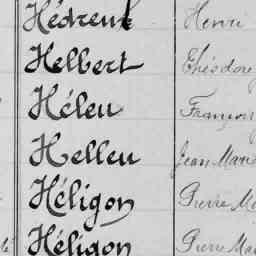 Hédreul Henri
Helbert Théodore
Héleu François
Helleu Jean Marie
Héligon Pierre Ma
Héligon Pierre Ma